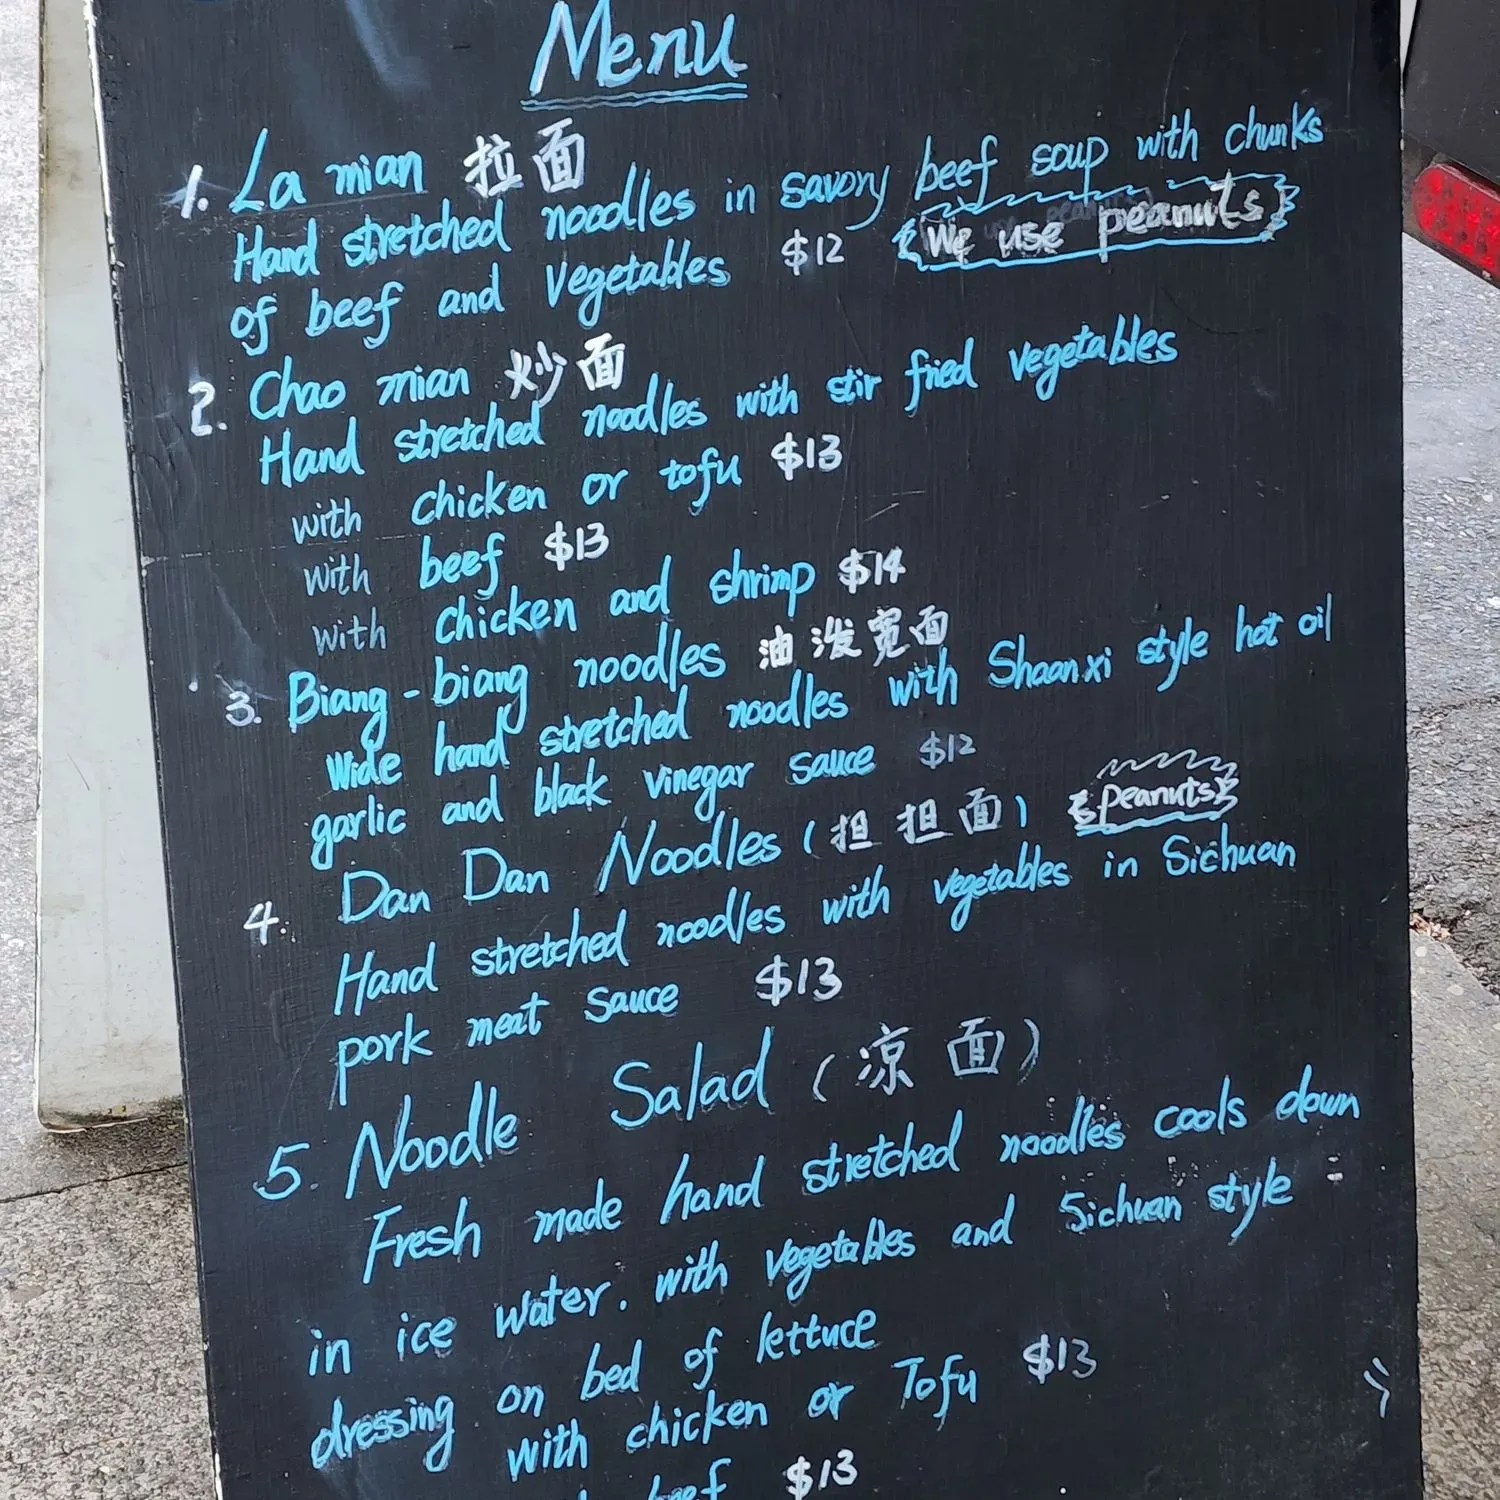 Menu
1. La mian 拉面
Hand stretched noodles in savory beef soup with chunks
of beef and Vegetables $12 We use peanuts
2. Chao mian 炒面
Hand stretched noodles with stir fried vegetables
with chicken or tofu $13
with beef $13
with chicken and shrimp $14
3. Biang-biang noodles 油泼宽面
Wide hand stretched noodles with Shaanxi style hot oil
garlic and black vinegar sauce $12
4. Dan Dan Noodles (担担面) peanuts
Hand stretched noodles with vegetables in Sichuan
pork meat sauce $13
5. Noodle Salad (凉面)
Fresh made hand stretched noodles cools down
in ice water. with vegetables and Sichuan style
dressing on bed of lettuce
with chicken or Tofu $13
beef $13